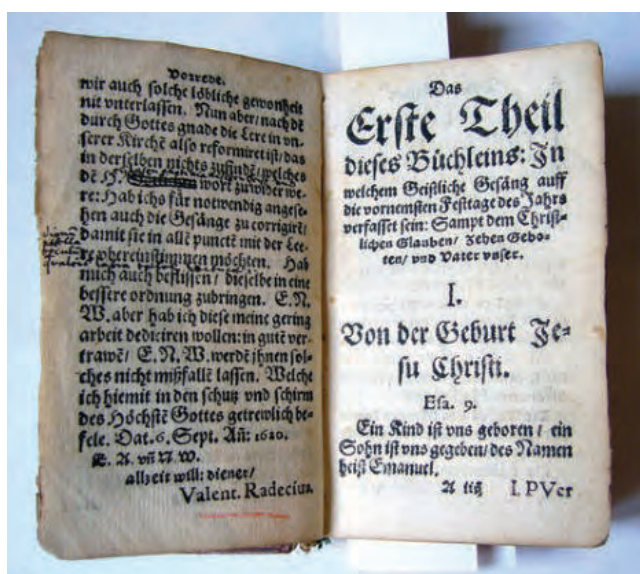 Vorrede.
wir auch solche löbliche gewonheit
nit vnterlassen. Nun aber/nach dē
durch Gottes gnade die Lere in vn-
serer Kirchē also reformiret ist/das
in derselben nichts zufindē/welches
dē H. wort zuwider we-
re: Hab ichs für notwendig angese-
hen auch die Gesänge zu corrigirē/
damit sie in allē punctē mit der Lee-
re vbereinstimmen möchten. Hab
mich auch beflissen/ dieselbe in eine
bessere ordnung zubringen. E. N.
W. aber hab ich diese meine gering
arbeit dediciren wollen: in gutē ver-
trawē/ E. N. W. werdē jhnen sol-
ches nicht mißfallē lassen. Welche
ich hiemit in den schutz vnd schirm
des Höchstē Gottes getrewlich be-
fele. Dat. 6. Sept. Añ: 1620.
E. A. vñ N. W.
allzeit will: diener/
Valent. Radecius.
Das
Erste Theil
dieses Büchleins: In
welchem Geistliche Gesäng auff
die vornemsten Festtage des Jahrs
verfasset sein: Sampt dem Christ-
lichen Glauben/ Zehen Gebo-
ten/ vnd Vater vnser.
I.
Von der Geburt Je-
su Christi.
Esa. 9.
Ein Kind ist vns geboren / ein
Sohn ist vns gegeben/des Namen
heist Emanuel.
A iiij I. PVer